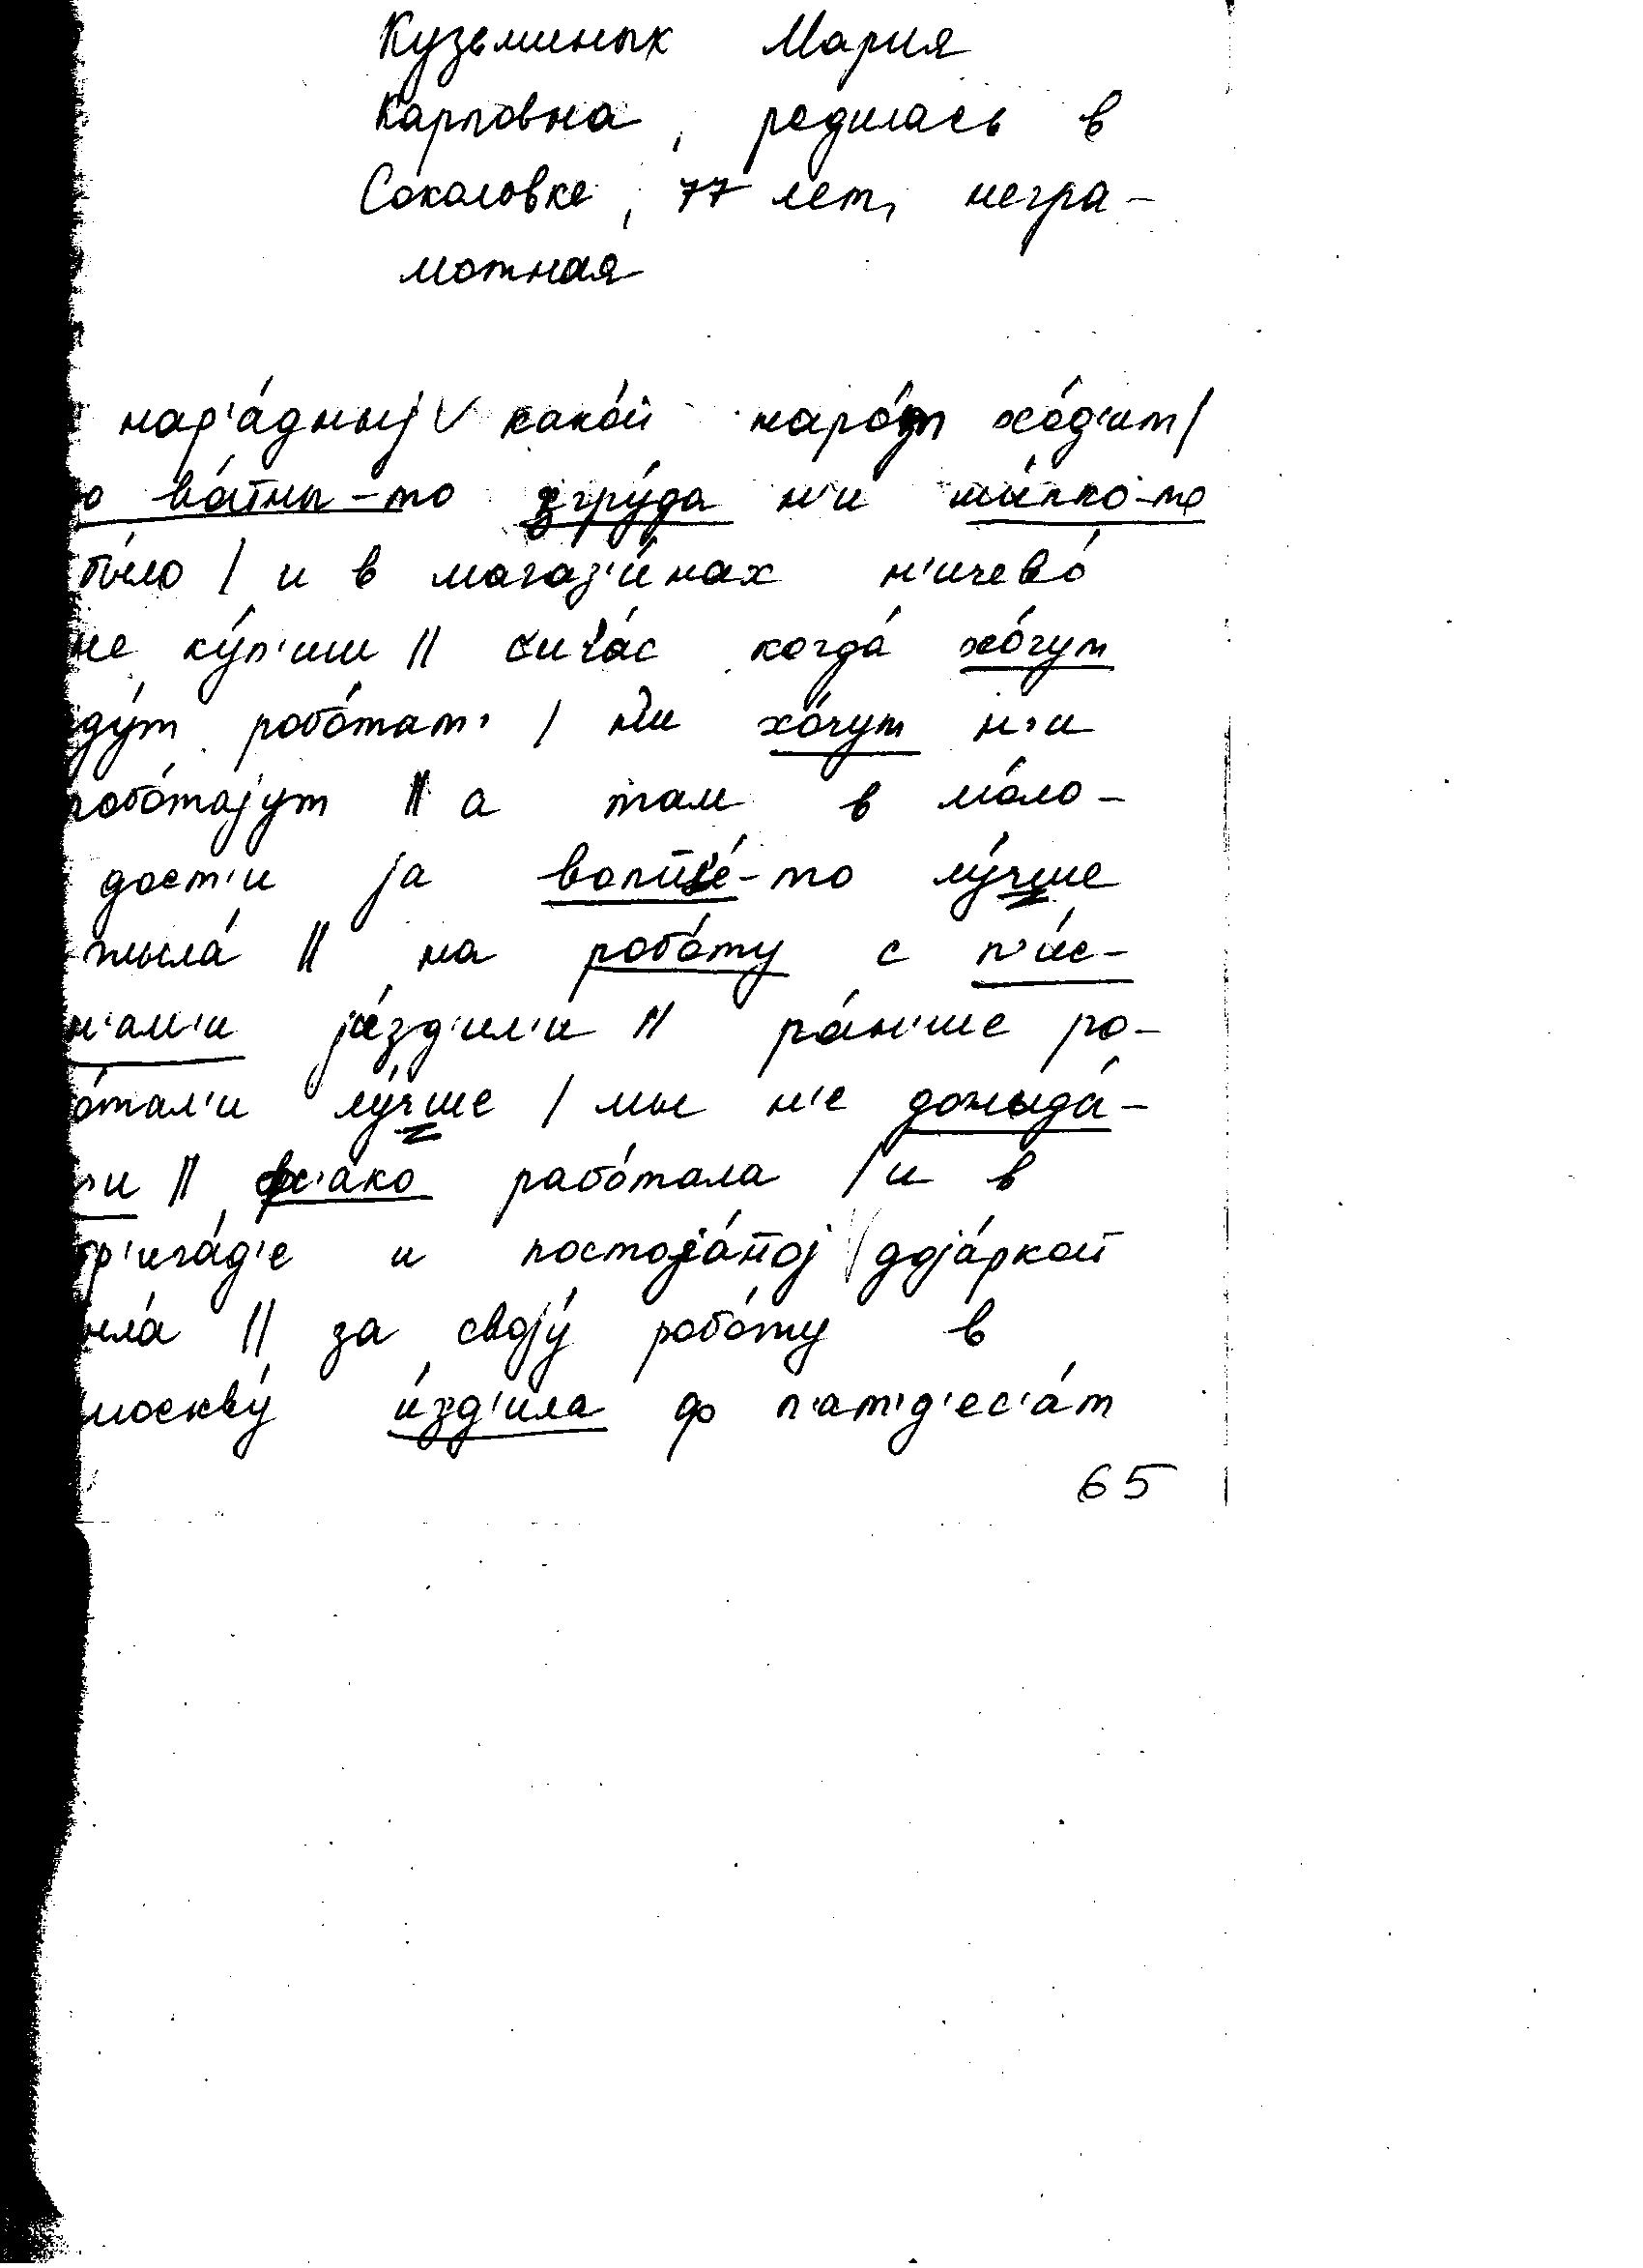 Кузьминых Мария
Карповна, родилась в
Соколовке, 77 лет, негра-
мотная
нар'а́дныј ∨ како́й наро́т хо́д'ит /
о ва́тны-то згру́да н'и ми́лко-то
бы́ло / и в магаз'и́нах н'ичево́
не ку́п'иш // сича́с когда́ хо́чут
ду́т робо́тат' / н'и хо́чут н'и
робо́тајут // а там в мо́ло-
дост'и ја вопше́-то лу́чше
жыла́ // на робо́ту с п'и́с-
н'ам'и је́зд'ил'и // ра́н'ше ро-
о́тал'и лу́чше / мы н'е дожыда́-
'и // фс'ако рабо́тала / и в
бр'ига́д'е и постоја́н̄ој / доја́ркой
ыла́ // за своју́ робо́ту в
москву́ и́зд'ила ф п'ат'д'ес'а́т
65